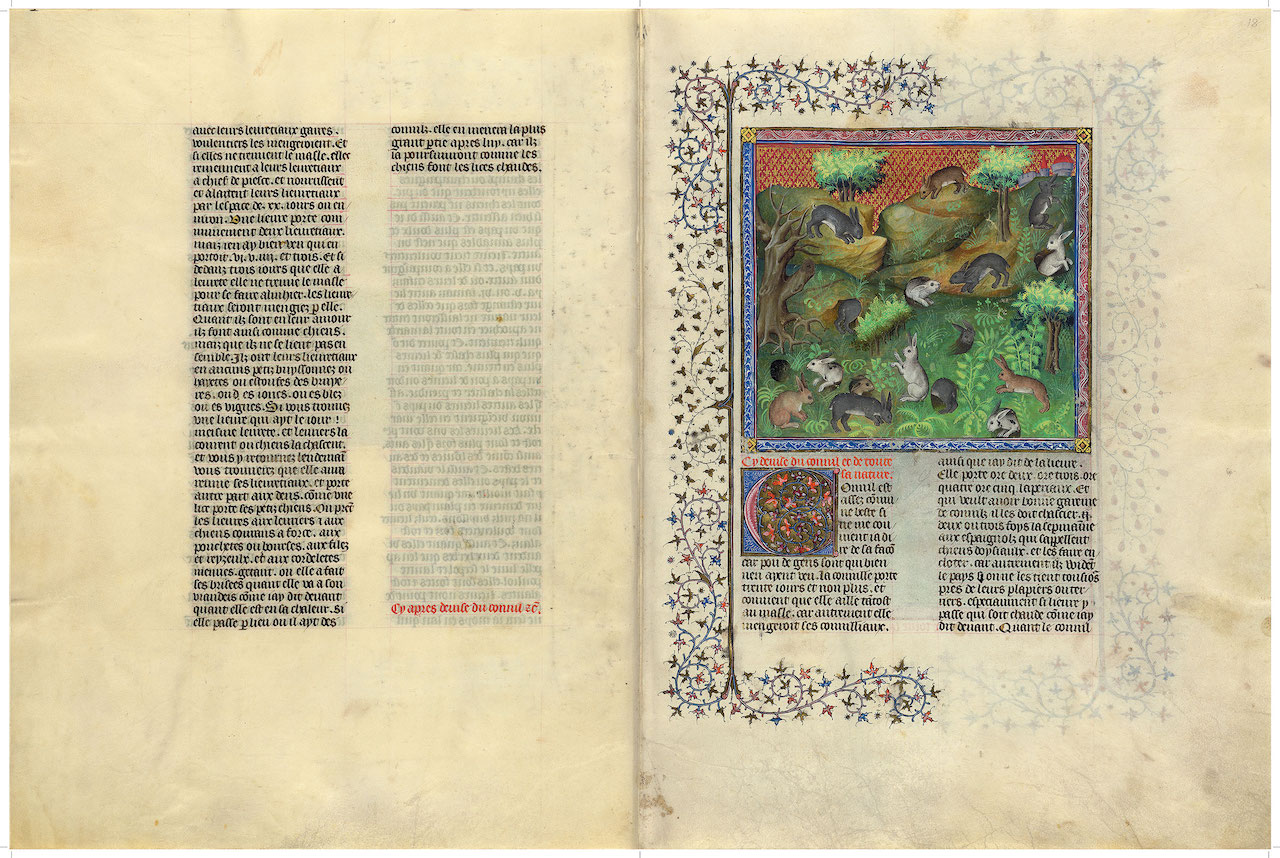 auec leurs leuretiaux gaires.
voulentiers les mengeroient. Et
si elles ne treuuent le masle. elles
reuiennent a leurs leuretiaux
a chief de piesce. et nourrissent
et alaitent leurs leuretiaux
par lespace de .xx. iours ou en-
uiron. Une lieure porte com-
munement deux leuretiaux.
maiz ien ay bien veu qui en
portoit .vj. v. iiij. et trois. Et si
dedanz trois iours que elle a
leurete elle ne treuue le masle
pour se faire aluhier. les lieure-
tiaux seront mengiez p elle.
Quant ilz sont en leur amour
ilz font ainsi comme chiens.
maiz que ilz ne se lient pas en
semble. Ilz ont leurs lieuretiaux
en aucuns petiz buyssonnez ou
hayetes ou es touffes des bruye-
res. ou d es ioncs. ou es blez
ou es vignes. Si vous trouuez
une lieure qui ayt le iour
meisme leurete. et leuriers la
courent ou chiens la chassent.
et vous y retournez lendemain
vous trouuerez que elle aura
remue ses lieuretiaux. et porte
autre part aux dens. cõme vne
lice porte ses petiz chiens. On prẽt
les lieures aux leuriers et aux
chiens courans a force. aux
pouchetes ou bourses. aux filez
et reyzeulz. et aux cordeletes
menues. getant. ou elle a fait
ses brisees quant elle va a son
viandeis cõme iay dit deuant
quant elle est en sa chaleur. si
elle passe p lieu ou il ayt des
connilz. elle en menera la plus
grant ptie apres luy. car ilz
la poursuiuont comme les
chiens font les lices chaudes.
Cy apres deuise du connil
18
Cy deuise du connil et de toute
sa nature.
Connil est
assez cõmu-
ne beste si
ne me con
uient ia di
re de sa facõ
car pou de gens sont qui bien
nen ayent veu. la connille porte
trente iours et non plus. et
conuient que elle aille tãtost
au masle. car autrement elle
mengeroit ses connilliaux.
ainsi que iay dit de la lieure.
Elle porte ore deux. ore trois. ore
quatre ore cinq. lapriaux. Et
qui veult auoir bonne garenne
de connilz. il les doit chassier.
deux ou trois foys la sepmaine
aux espaignolz qui sappellent
chiens doysiaux. et les faire en
cloter. car autrement ilz vuidẽt
le pays q̃ on ne les tient tousiõs
pres de leurs clapiers ou ter-
riers. especiaument si lieure y
passe qui soit chaude cõme iay
dit deuant. Quant le connil